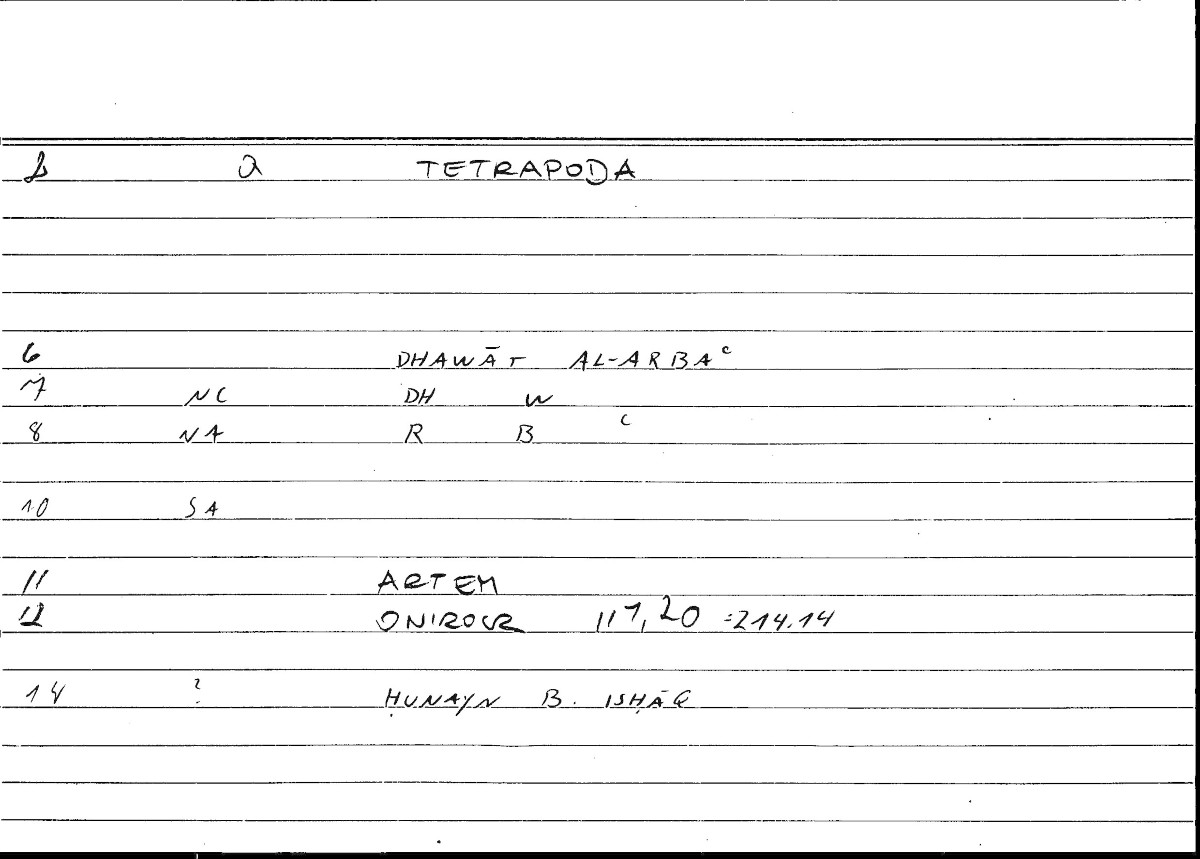 1 a TETRAPODA
6 DHAWĀT AL-ARBAᶜ
7 NC DH W
8 NA R B ᶜ
10 SA
11 ARTEM
12 ONIROCR 117,20 =214.14
14 ? ḤUNAYN B. ISḤĀQ